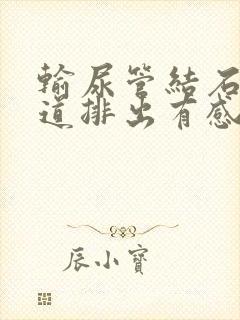 輸尿管結石
道排出有感
辰小寶